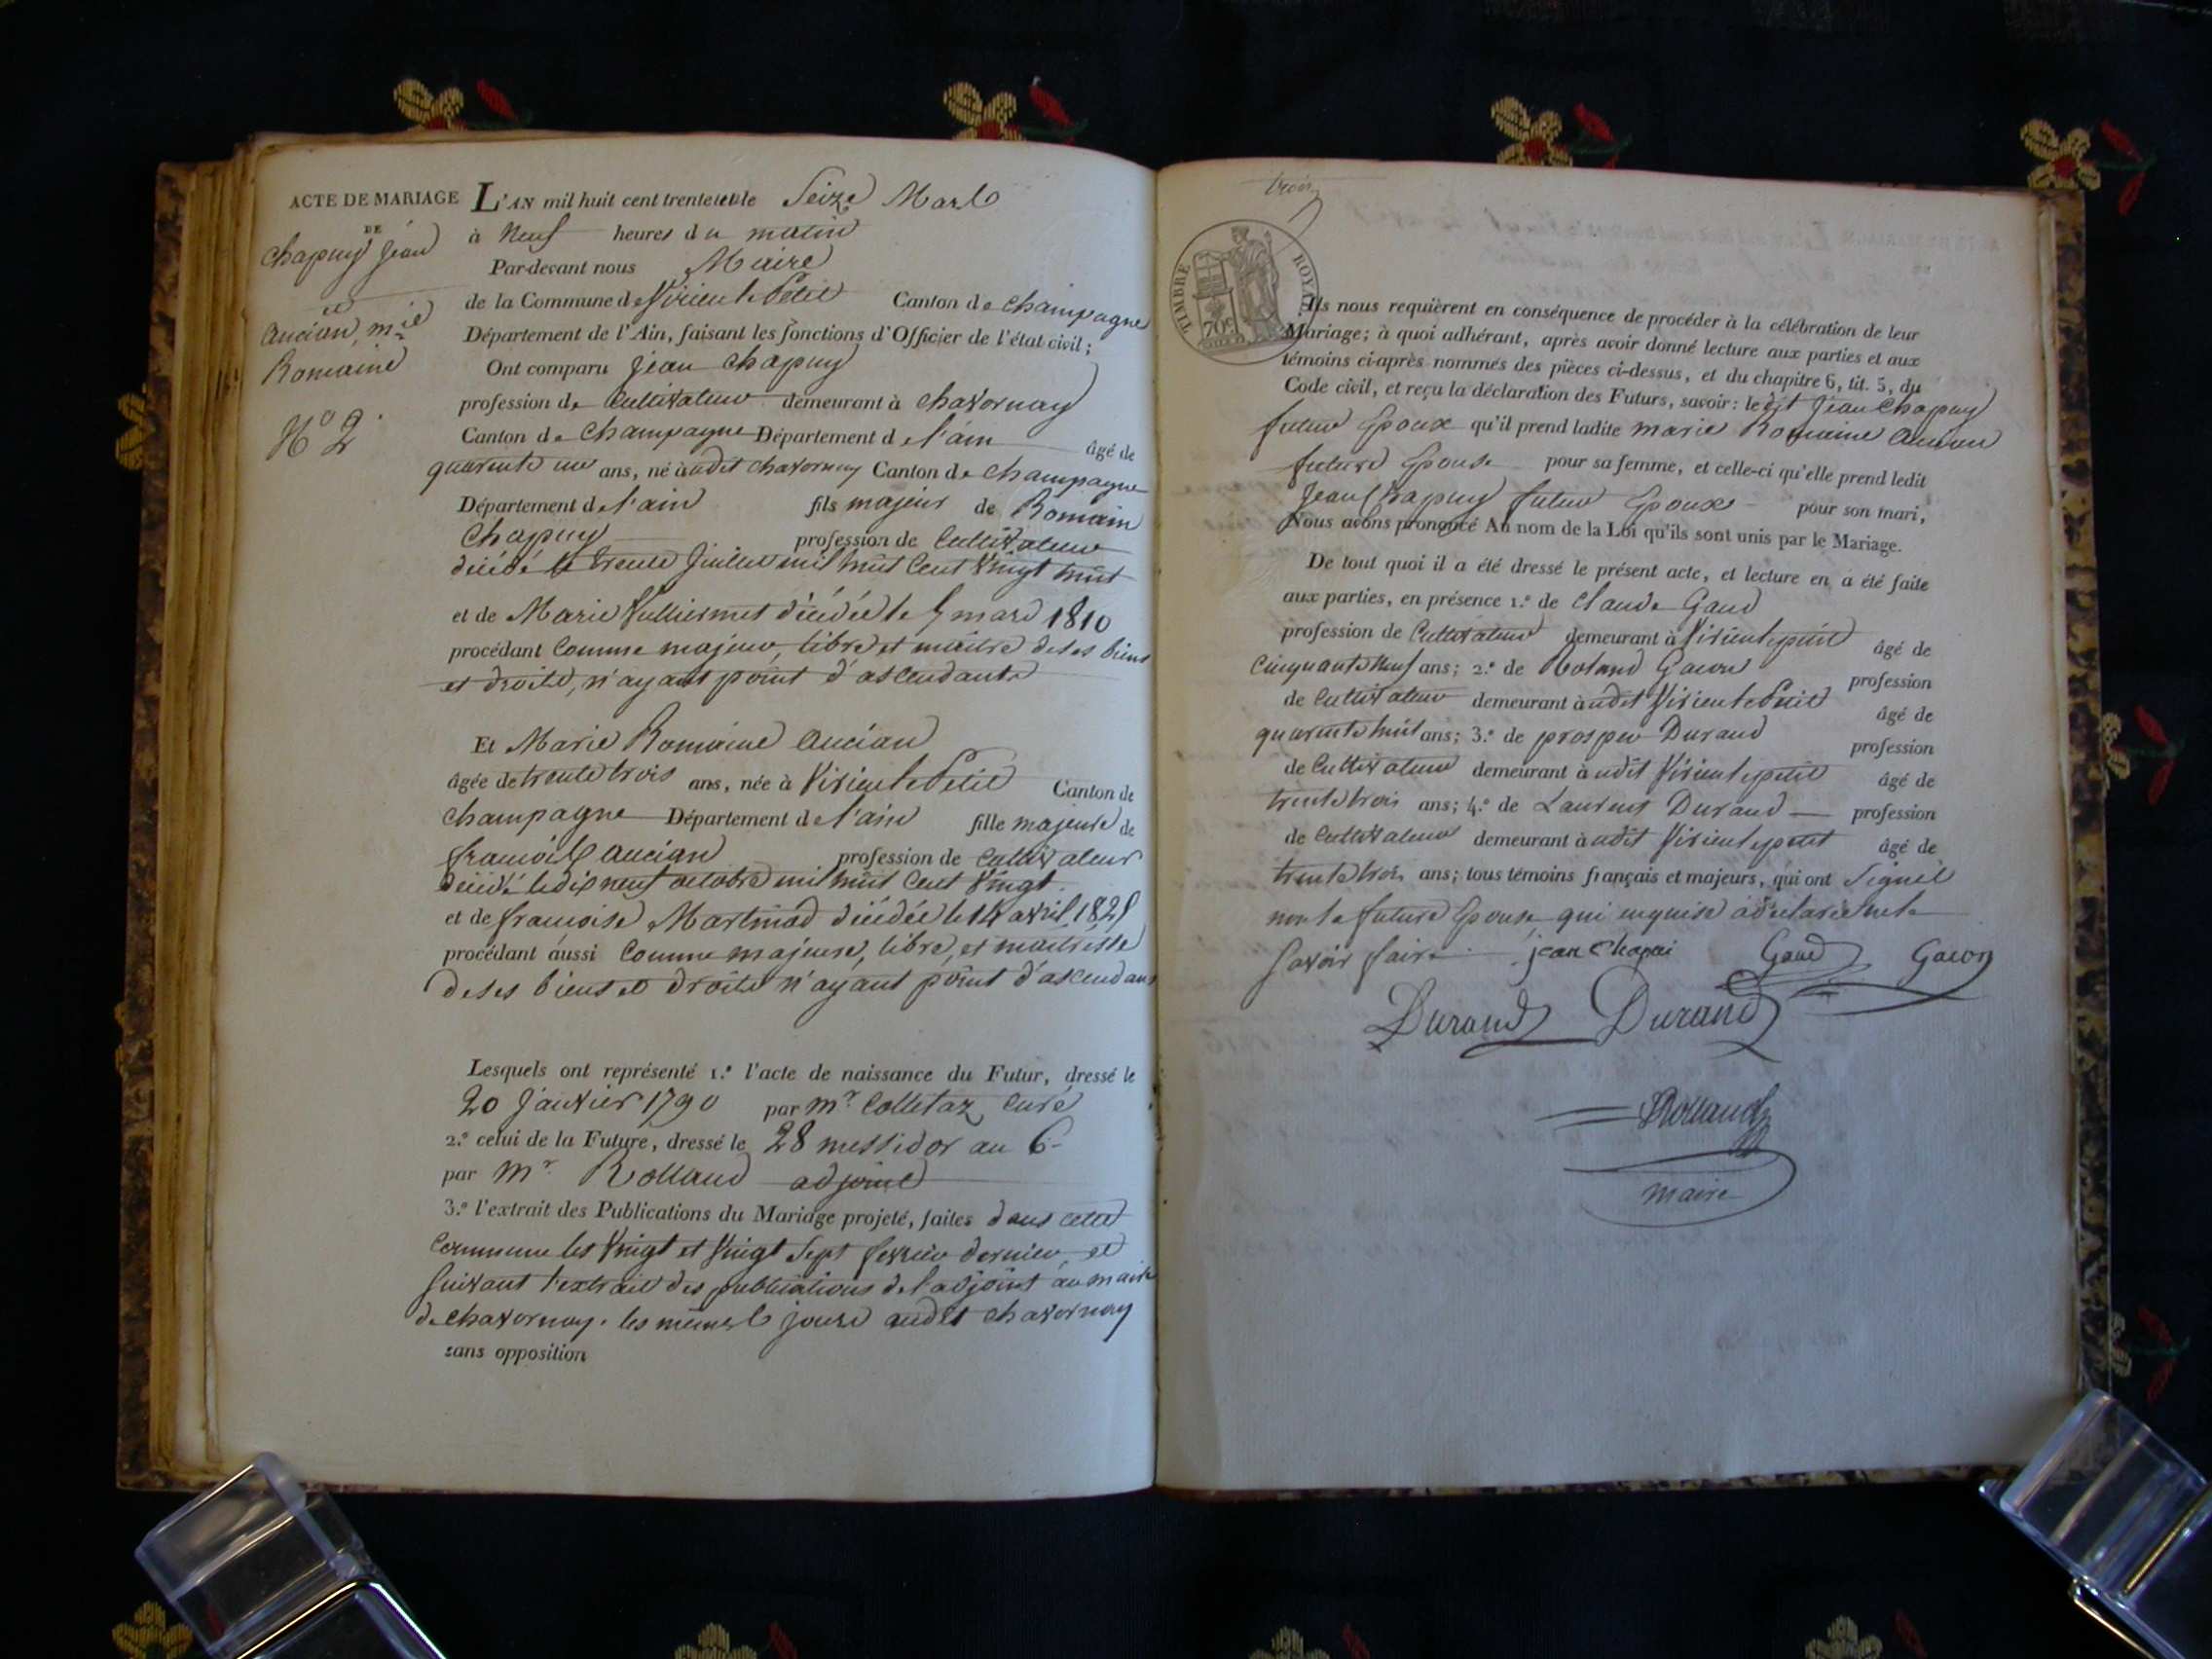 ACTE DE MARIAGE
DE
Chapuy Jean
et
Ancian, m.ie
Romaine
N.o 2.
L'AN mil huit cent trente et un le Seize Mars
à Neuf heures du matin
Par-devant nous Maire
de la Commune de Virieu le Petit Canton de Champagne
Département de l'Ain, faisant les fonctions d'Officier de l'état civil;
Ont comparu Jean Chapuy
profession de Cultivateur demeurant à Chavornay
Canton de Champagne Département de l'ain âgé de
quarente un ans, né à udit Chavornay Canton de Champagne
Département de l'ain fils majeur de Romain
Chapuy profession de Cultivateur
décédé le trente Juillet mil huit Cent Vingt huit
et de Marie Vulliermet décédée le 5 mars 1810
procédant Comme majeur, libre et maitre de ses biens
et droits, n'ayant point d'ascendants
Et Marie Romaine Ancian
âgée de trente trois ans, née à Virieu le Petit Canton de
Champagne Département de l'ain fille majeure de
françois Ancian profession de Cultivateur
décédé le dix neuf octobre mil huit Cent Vingt
et de françoise Martinod décédée le 14 avril
procédant aussi Comme majeure, libre, et maitresse
de ses biens et droits n'ayant point d'ascendans
Lesquels ont représenté 1.o l'acte de naissance du Futur, dressé le
20 Janvier 1790 par m.r Colletaz Curé
2.o celui de la Future, dressé le 28 messidor an 6
par m.r Rolland adjoint
3.o l'extrait des Publications du Mariage projeté, faites dans cette
Commune les Vingt et Vingt Sept fevrier dernier, et
Suivant l'extrait des publications de l'adjoint au maire
de Chavornay. les mêmes jours audit Chavornay
sans opposition
trois
TIMBRE ROYAL
70c
Ils nous requièrent en conséquence de procéder à la célébration de leur
Mariage; à quoi adhérant, après avoir donné lecture aux parties et aux
témoins ci-après nommés des pièces ci-dessus, et du chapitre 6, tit. 5, du
Code civil, et reçu la déclaration des Futurs, savoir: le dit Jean Chapuy
futur Epoux qu'il prend ladite marie Romaine Ancian
future Epouse pour sa femme, et celle-ci qu'elle prend ledit
Jean Chapuy futur Epoux pour son mari,
Nous avons prononcé Au nom de la Loi qu'ils sont unis par le Mariage.
De tout quoi il a été dressé le présent acte, et lecture en a été faite
aux parties, en présence 1.o de Claude Gaud
profession de Cultivateur demeurant à Virieu le petit âgé de
Cinquante Neuf ans; 2.o de Roland Gacon profession
de Cultivateur demeurant à udit Virieu le Petit âgé de
quarente huit ans; 3.o de prosper Durand profession
de Cultivateur demeurant à udit Virieu le petit âgé de
trente trois ans; 4.o de Laurent Durand profession
de Cultivateur demeurant à udit Virieu le petit âgé de
trente trois ans; tous témoins français et majeurs, qui ont Signé
non la future Epouse qui enquise a déclaré ne le
Savoir faire jean Chapui Gaud Gacon
Durand Durand
Rolland
maire